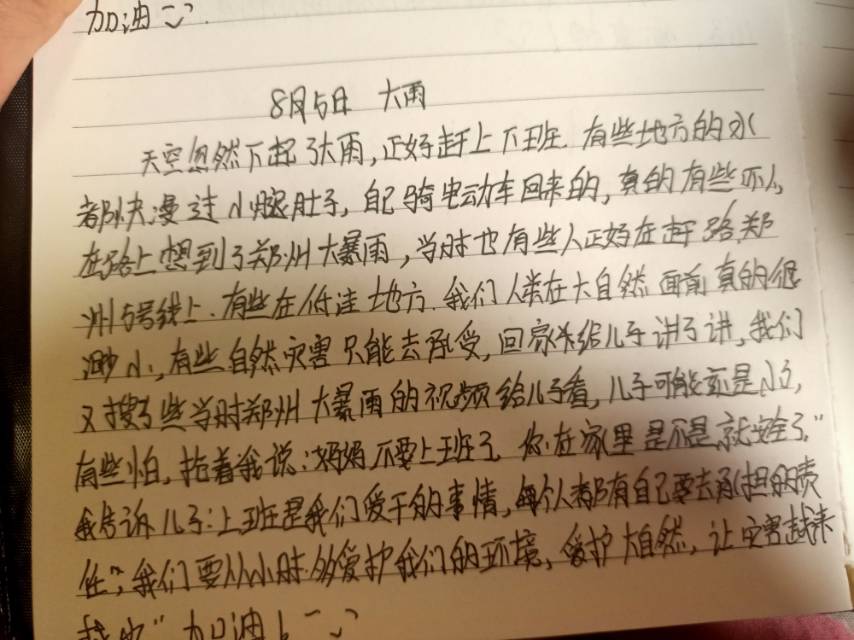 加油
8月5日 大雨
天空忽然下起了大雨,正好赶上下班.有些地方的水
都快漫过小腿肚子,自己骑电动车回来的,真的有些吓人,
在路上想到了郑州大暴雨,当时也有些人正好在赶路,郑
州5号线上.有些在低洼地方.我们人类在大自然面前真的很
渺小,有些自然灾害只能去承受,回家给儿子讲了讲,我们
又搜了些当时郑州大暴雨的视频给儿子看,儿子可能还是小,
有些怕,抱着我说:"妈妈不要上班了,你在家里是不是就安全了."
我告诉儿子:上班是我们要干的事情,每个人都有自己要去承担的责
任,我们要从小时多爱护我们的环境,爱护大自然,让灾害越来
越少"加油!